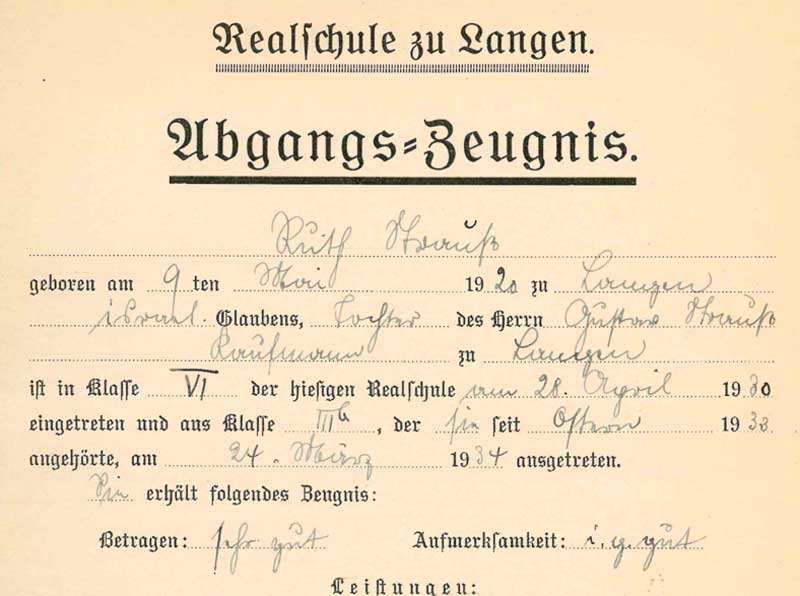 Realschule zu Langen.
Abgangs-Zeugnis.
Ruth Strauß
geboren am 9ten Mai 1920 zu Langen
israel. Glaubens, Tochter des Herrn Gustav Strauß
Kaufmann zu Langen
ist in Klasse VI der hiesigen Realschule am 28. April 1930
eingetreten und aus Klasse IIIb, der sie seit Ostern 1933
angehörte, am 24. März 1934 ausgetreten.
Sie erhält folgendes Zeugnis:
Betragen: sehr gut Aufmerksamkeit: i. g. gut
Leistungen: